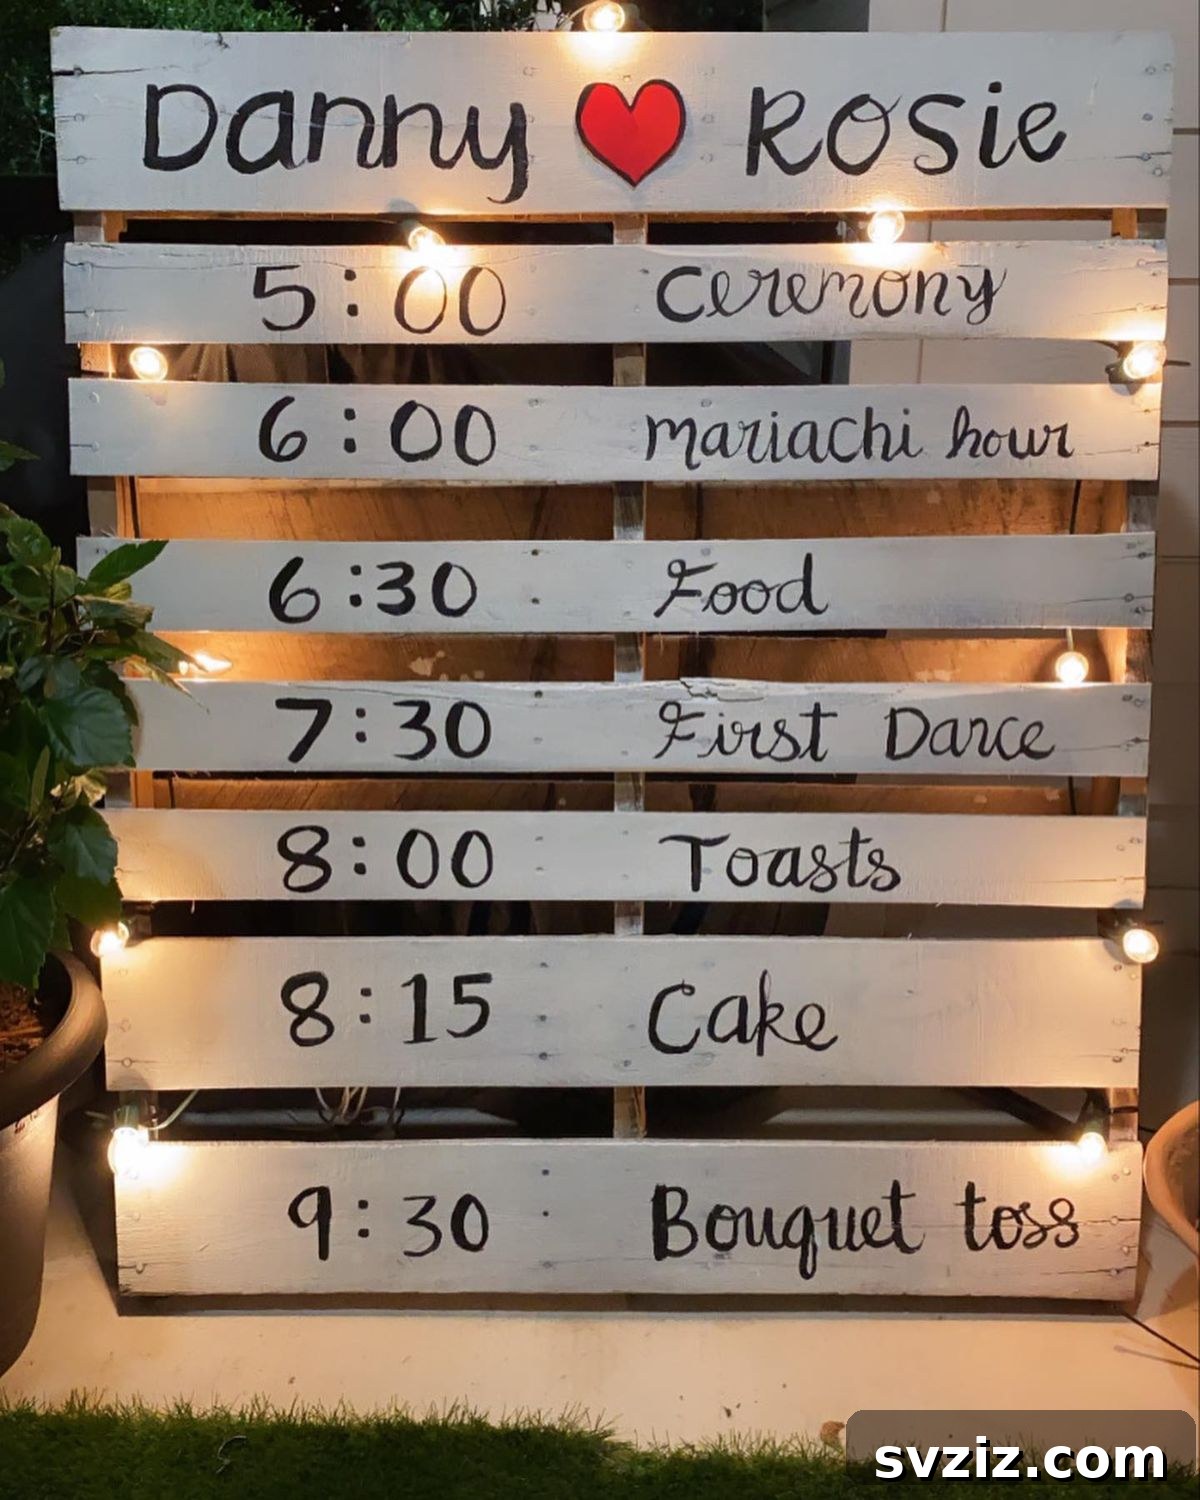 Danny ❤ Rosie
5:00 Ceremony
6:00 mariachi hour
6:30 Food
7:30 First Dance
8:00 Toasts
8:15 Cake
9:30 Bouquet toss
svziz.com